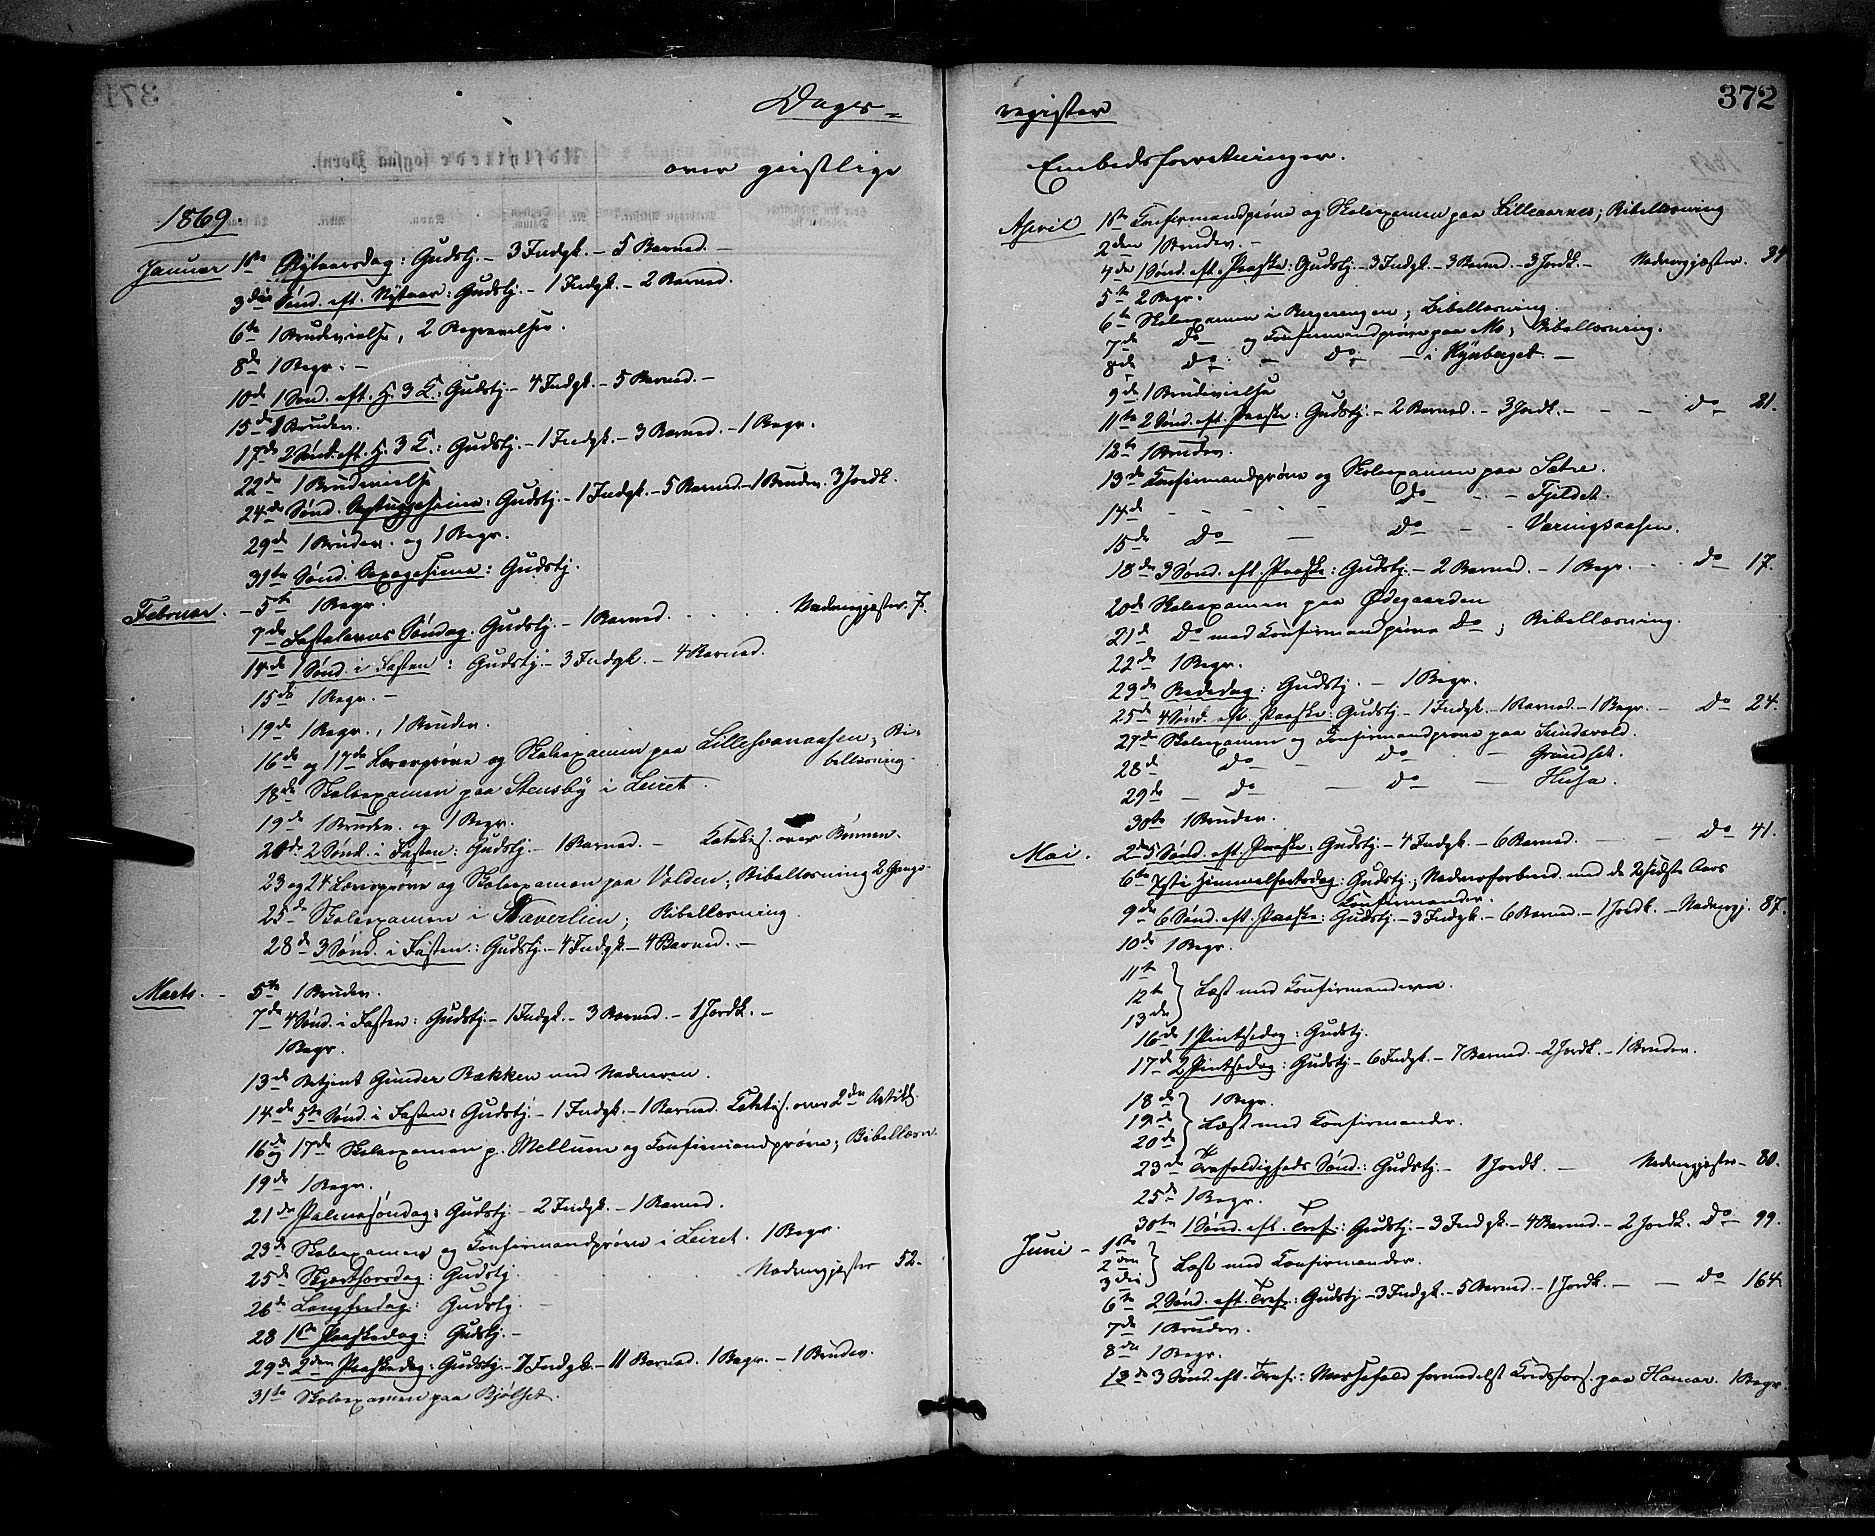 Dags-
over geistlige
1869.
Januar 1ste Nytaarsdag: Gudstj. - 3 Indgk. - 5 Barned. -
3die Sønd. eft. Nytaar: Gudstj. - 1 Indgk. - 2 Barned.
6te 1 Brudevielse, 2 Begravelser.
8de 1 Begr. -
10de 1 Sønd. eft. H. 3 K.: Gudstj. - 4 Indgk. - 5 Barned. -
15de 1 Brudev.
17de 2 Sønd. eft. H. 3 K.: Gudstj. - 1 Indgk. - 3 Barned. - 1 Begr.
22de 1 Brudevielse
24de Sønd. Septuagesima: Gudstj. - 1 Indgk. - 5 Barned. - 1 Brudev. 3 Jordk.
29de 1 Brudev. og 1 Begr.
31te Sønd. Sexagesima: Gudstj.
Februar. - 5te 1 Begr.
7de Fastelavns Søndag. Gudstj. - 1 Barned. . . . Nadvergjæster. 7.
14de 1 Sønd. i Fasten: Gudstj. - 3 Indgk. - 4 Barned.
15de 1 Begr. -
19de 1 Begr., 1 Brudev.
16de og 17de Læverprøve og Skoleexamen paa Lillesvanaasen; Bi-
bellæsning.
18de Skoleexamen paa Stensby i Leiret.
19de 1 Brudev. og 1 Begr.
20de 2 Sønd. i Fasten: Gudstj. - 1 Barned. - Katekis. over Bønnen.
23 og 24 Læseprøve og Skoleexamen paa Volden; Bibellæsning 2 Gange.
25de Skoleexamen i Staverlien; Bibellæsning.
28de 3 Sønd. i Fasten: Gudstj. - 4 Indgk. - 4 Barned. -
Marts. - 5te 1 Brudev.
7de 4 Sønd. i Fasten: Gudstj. - 1 Indgk. - 3 Barned. - 1 Jordk. -
1 Begr.
13de Betjent Gunder Bækken med Nadveren.
14de 5te Sønd. i Fasten: Gudstj. - 1 Indgk. - 1 Barned. Katekis. over 2den Artikk.
16de og 17de Skoleexamen p. Mellum og Confirmandprøve; Bibellæsn.
19de 1 Begr.
21de Palmesøndag: Gudstj. - 2 Indgk. - 1 Barned.
23de Skoleexamen og Confirmandprøve i Leiret. 1 Begr.
25de Skjærthorsdag: Gudstj. . . . Nadvergjæster 52.
26de Langfredag: Gudstj. -
28 1ste Paaskedag: Gudstj. -
29de 2den Paaskedag: Gudstj. - 7 Indgk. - 11 Barned. 1 Begr. - 1 Brudev.
31te Skoleexamen paa Bjølset.
372
register
Embedsforretninger.
April 1ste Confirmandprøve og Skoleexamen paa Lilleaarnes; Bibellæsning
2den 1 Brudev. -
4de 1 Sønd. eft. Paaske: Gudstj. - 3 Indgk. - 3 Barned. - 3 Jordk. - Nadvergjæster. 34
5te 2 Begr.
6te Skoleexamen i Bergerengen; Bibellæsning.
7de Do og Confirmandprøve paa Mo; Bibellæsning.
8de Do - Do - i Nyberget. -
9de 1 Brudevielse
11te 2 Sønd. eft. Paaske: Gudstj. - 2 Barned. - 3 Jordk. - - - Do 21.
12te 1 Brudev.
13de Confirmandprøve og Skoleexamen paa Sætre.
14de - - - - Do - - Fjeldet.
15de Do - Do - - Væringsaasen.
18de 3 Sønd. eft. Paaske: Gudstj. - 2 Barned. - 1 Begr. - - Do 17.
20de Skoleexamen paa Ødegaarden
21de Do med Confirmandprøve Do; Bibellæsning.
22de 1 Begr.
23de Bededag: Gudstj. - 1 Begr.
25de 4 Sønd. eft. Paaske: Gudstj. - 1 Indgk. - 1 Barned. - 1 Begr. - Do 24.
27de Skoleexamen og Confirmandprøve paa Sundevold.
28de Do - Do - Grundset.
29de - Do - Do - Husa.
30te 1 Brudev.
Mai. 2den 5 Sønd. eft. Paaske: Gudstj. - 4 Indgk. - 6 Barned. - - Do 41.
6te Xsti Himmelfartsdag: Gudstj.; Nadverforbered. med de 2 sidste Aars
Confirmander.
9de 6 Sønd. eft. Paaske: Gudstj. - 3 Indgk. - 6 Barned. - 1 Jordk. - Nadvergj. 87.
10de 1 Begr.
11te
12te } Læst med Confirmanderne.
13de
16de 1 Pintsedag: Gudstj.
17de 2 Pintsedag: Gudstj. - 6 Indgk. - 7 Barned. - 2 Jordk. - 1 Brudev.
18de 1 Begr.
19de } Læst med Confirmander.
20de
23de Trefoldigheds Sønd.: Gudstj. - 1 Jordk. - Nadvergjæster - 80.
25de 1 Begr.
30te 1 Sønd. eft. Tref.: Gudstj. - 3 Indgk. - 4 Barned. - 2 Jordk. Do 99.
Juni - 1ste
2den } Læst med Confirmander.
3die
6te 2 Sønd. eft. Tref.: Gudstj. - 3 Indgk. - 5 Barned. - 1 Jordk. - - Do 164.
7de 1 Brudev.
8de 1 Begr.
13de 3 Sønd. eft. Tref.: Messefald formedelst Kredsfors. paa Hamar. 1 Begr.